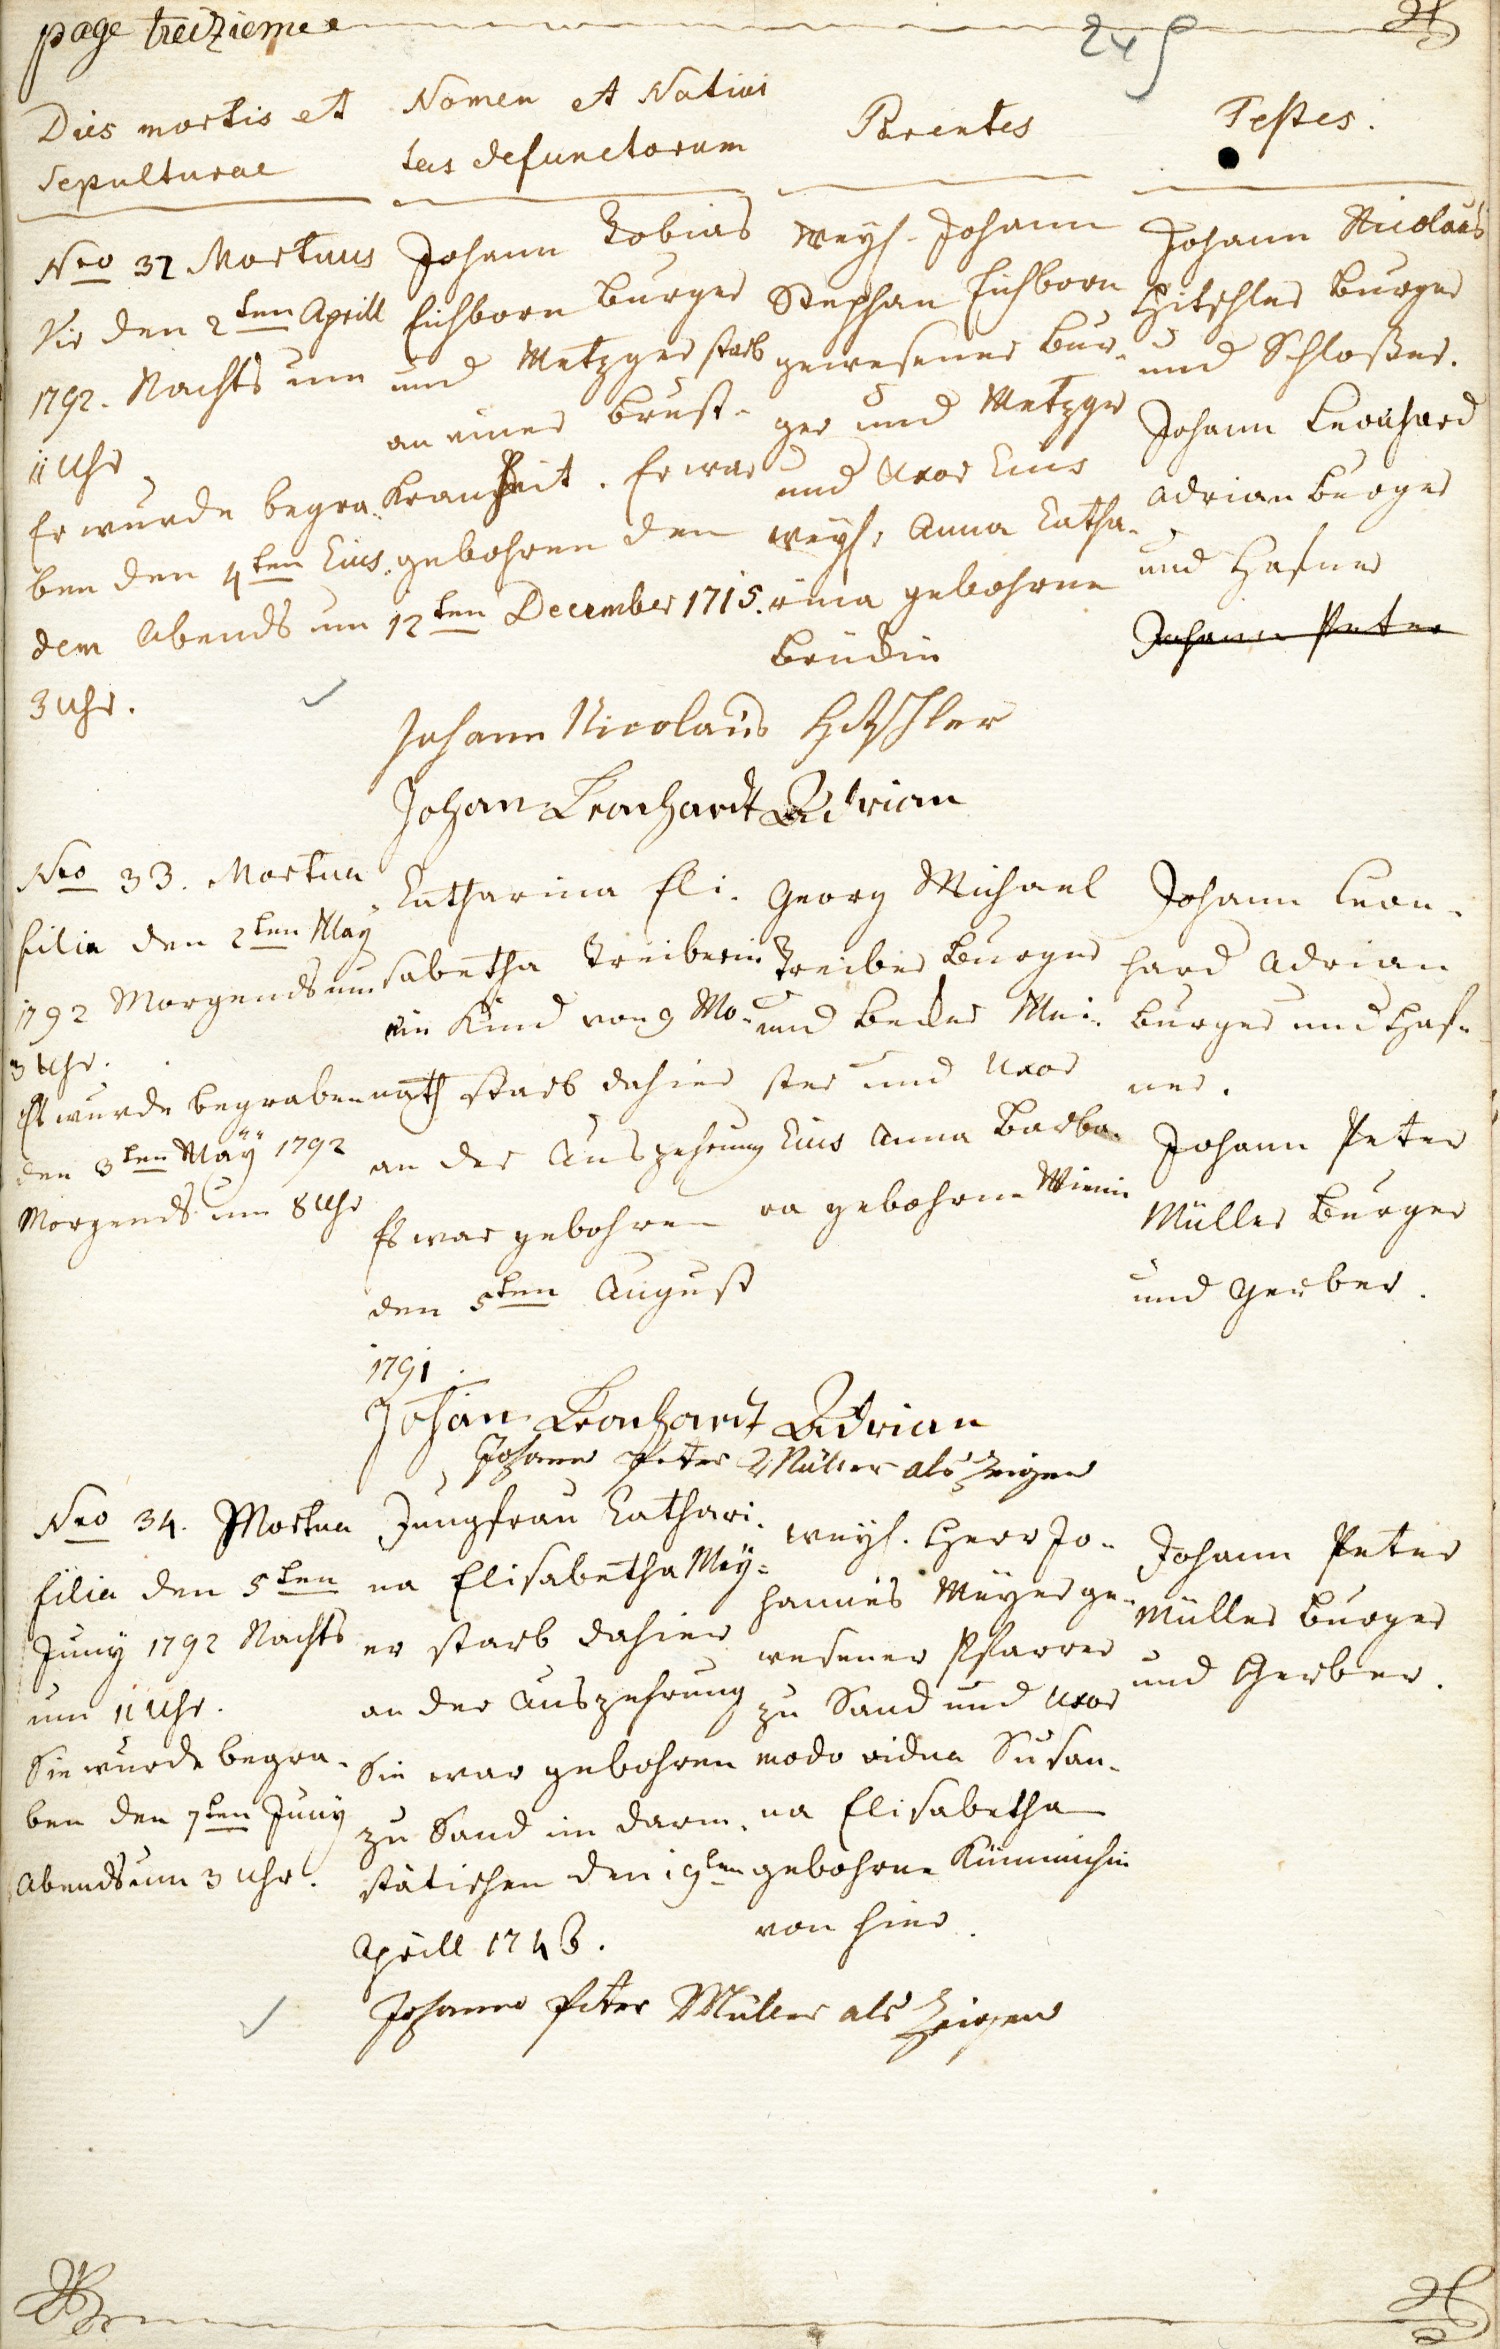 page treizieme
245
Dies mortis et
Sepulturae
Nomen et Nativi
tas defunctorum
Parentes
Testes.
Nro 32 Mortuus
Vir den 2ten Aprill
1792. Nachts um
11 Uhr
Er wurde begra-
ben den 4ten Eius-
dem Abends um
3 Uhr.
Johann Tobias
Eichborn Burger
und Metzger starb
an einer Brust-
Krankheit. Er war
gebohren den
12ten December 1715.
weyl. Johann
Stephan Eichborn
gewesener Bur-
ger und Metzger
und Uxor Eius
weyl. Anna Catha-
rina gebohrne
Brüdin
Johann Nicolaus
Hitschler Burger
und Schloßer.
Johann Leonhard
Adrian Burger
und Hafner
Johann Peter
Johann Nicolaus Hitschler
Johan Leonhardt Adrian
Nro 33. Mortua
filia den 2ten May
1792 Morgends um
3 Uhr.
Es wurde begraben
den 3ten Maÿ 1792
Morgends um 8 Uhr
Catharina Eli-
sabetha Treiberin
ein Kind von 9 Mo-
nath starb dahier
an der Auszehrung
Es war gebohren
den 5ten August
1791.
Georg Michael
Treiber Burger
und Becker Mei-
ster und Uxor
Eius Anna Barba-
ra gebohrne
Johann Leon-
hard Adrian
Burger und Haf-
ner.
Johann Peter
Müller Burger
und Gerber.
Johan Leonhardt Adrian
Johann Peter Müller als Zeigen
Nro 34. Mortua
filia den 5ten
Juny 1792 Nachts
um 11 Uhr.
Sie wurde begra-
ben den 7ten Juny
Abends um 3 Uhr.
Jungfrau Cathari-
na Elisabetha Meÿ-
er starb dahier
an der Auszehrung
Sie war gebohren
zu Sand im Darm-
städtischen den 19ten
Aprill 1748.
weyl. Herr Jo-
hannes Meyer ge-
wesener Pfarrer
zu Sand und Uxor
modo vidua Susan-
na Elisabetha
gebohrne Kümmichin
von hier.
Johann Peter
Müller Burger
und Gerber.
Johann Peter Müller als Zeigen